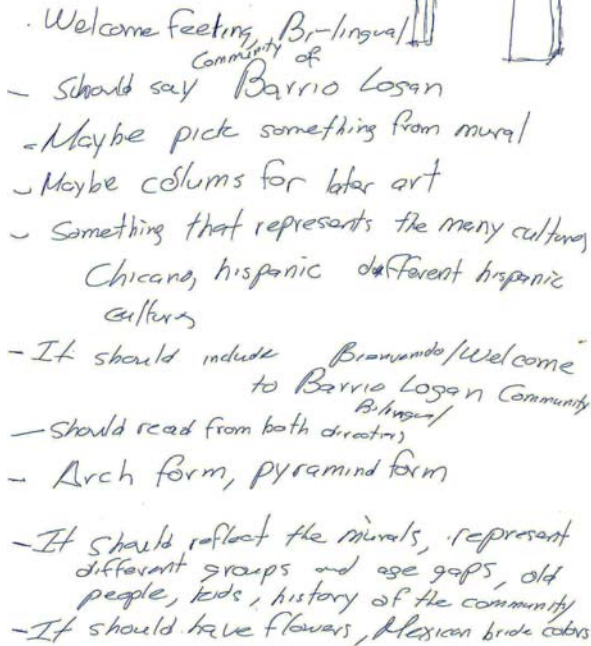 . Welcome feeling, Bi-lingual
Community of
- Should say Barrio Logan
- Maybe pick something from mural
- Maybe colums for later art
- Something that represents the many cultures
Chicano, hispanic different hispanic
cultures
- It should include Bienvenido/Welcome
to Barrio Logan Community
Bilingual
- Should read from both directions
- Arch form, pyramind form
- It should reflect the murals, represent
different groups and age gaps, old
people, kids, history of the community
- It should have flowers, Mexican bride colors